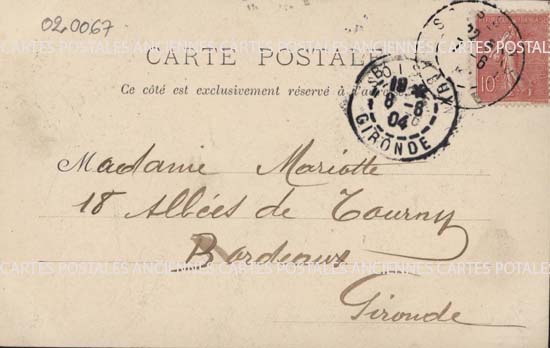 02.0067
CARTE POSTALE
Ce côté est exclusivement réservé à l'a
BORDEAUX
18
8-6
04
GIRONDE
10
Madame Mariotte
18 Allées de Tourny
Bordeaux
Gironde
CARTES POSTALES ANCIENNES CARTES POSTALES ANCIENNES CARTES POSTALES
CARTES POSTALES ANCIENNES CARTES POSTALES ANCIENNES CARTES POTALES